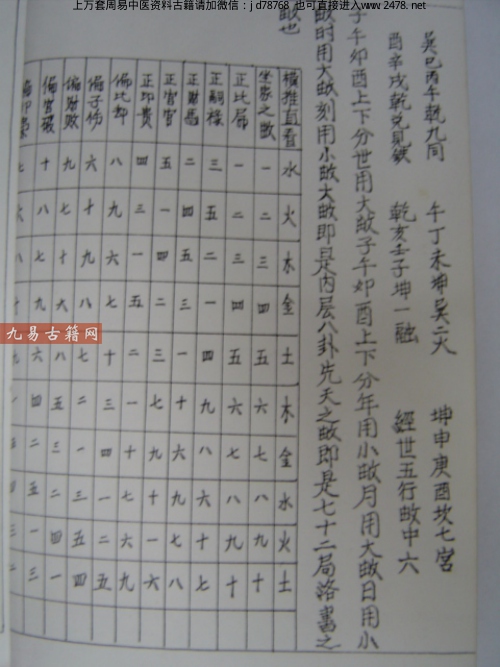 上万套周易中医资料古籍请加微信：jd78768 也可直接进入www.2478.net
巽巳丙午乾九同 午丁未坤巽二火 坤申庚酉坎七宮
酉辛戌乾兑見鉄 乾亥壬子坤一融 經世五行数中六
子午卯酉上下分世用大数子午卯酉上下分年用小数月用大数日用小
数时用大数刻用小数大数即是内层八卦先天之数即是七十二局洛書之
数也
橫推直看 水 火 木 金 土 木 金 水 火 土
坐家之数 一 二 三 四 五 六 七 八 九 十
正比局 一 二 三 四 五 六 七 八 九 十
正嗣禄 三 五 二 一 四 九 八 六 十 七
正財馬 二 四 五 三 一 十 六 九 七 八
正官官 五 一 四 二 三 七 九 十 八 六
正印貴 四 三 一 五 二 八 十 七 六 九
偏比却 八 九 六 七 十 三 四 一 二 五
偏子伤 六 十 九 八 七 二 一 三 五 四
偏財败 九 七 十 六 八 五 三 二 四 一
偏官破 十 八 七 九 六 四 二 五 一 三
偏印 七 六 八 十 九
九易古籍网